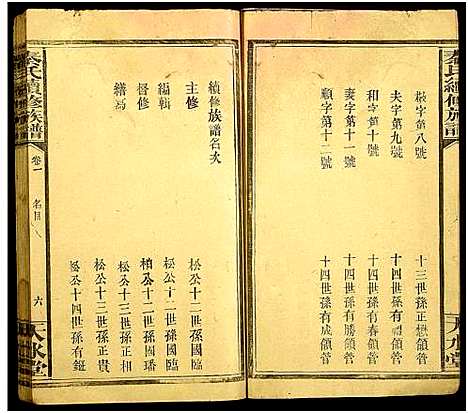 秦氏續修族譜
天水堂
椒字第八號　十三世孫正懋領管
夫字第九號　十四世孫有禮領管
和字第十號　十四世孫有春領管
妻字第十一號　十四世孫有勝領管
順字第十二號　十四世孫有成領管
續修族譜名次
主修　松公十二世孫國臨
編輯　松公十二世孫國臨
督修　栢公十二世孫國璠
松公十三世孫正貴
繕寫　松公十四世孫有鈕
秦氏續修族譜
卷一
名目
六
天水堂